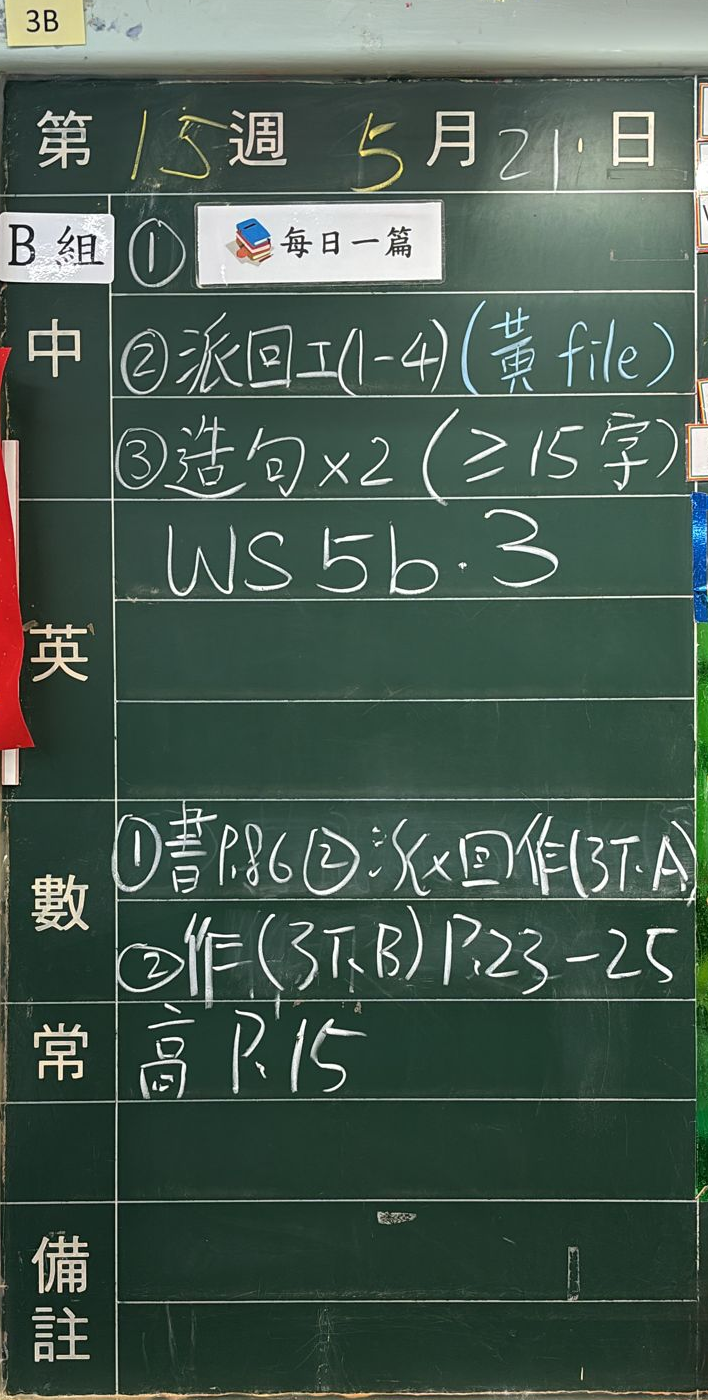 3B
第15週 5月21日
B組 ① 每日一篇
中
②派回工(1-4)(黃 file)
③造句×2(≥15字)
英
WS 5b.3
數
①書P.86②派×回作(3下A)
②作(3下B)P.23-25
常
高 P.15
備註